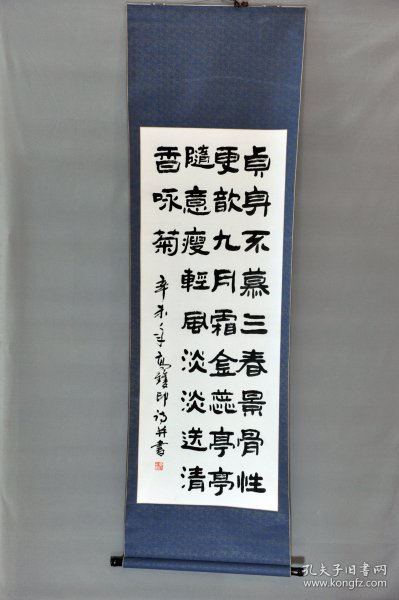 貞身不慕三春景骨性
更歆九月霜金蕊亭亭
隨意瘦輕風淡淡送清
香咏菊
辛未年印詩并書
孔夫子旧书网
www.kongfz.com